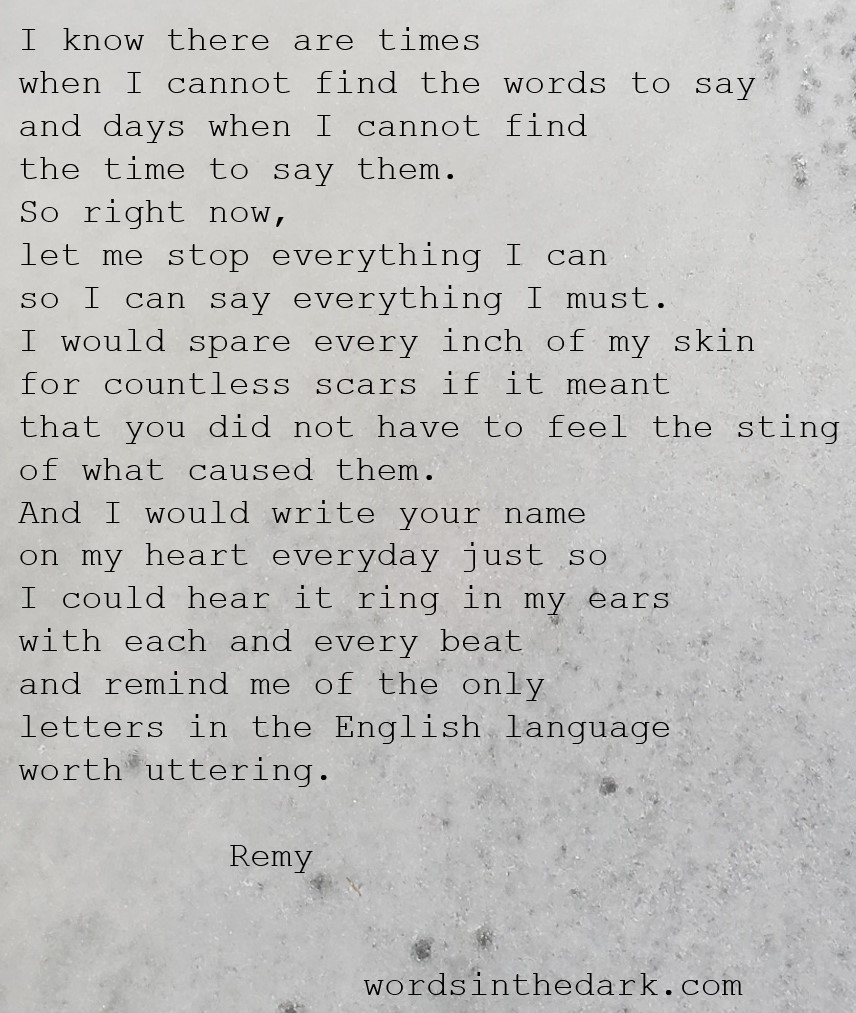 I know there are times
when I cannot find the words to say
and days when I cannot find
the time to say them.
So right now,
let me stop everything I can
so I can say everything I must.
I would spare every inch of my skin
for countless scars if it meant
that you did not have to feel the sting
of what caused them.
And I would write your name
on my heart everyday just so
I could hear it ring in my ears
with each and every beat
and remind me of the only
letters in the English language
worth uttering.
Remy
wordsinthedark.com